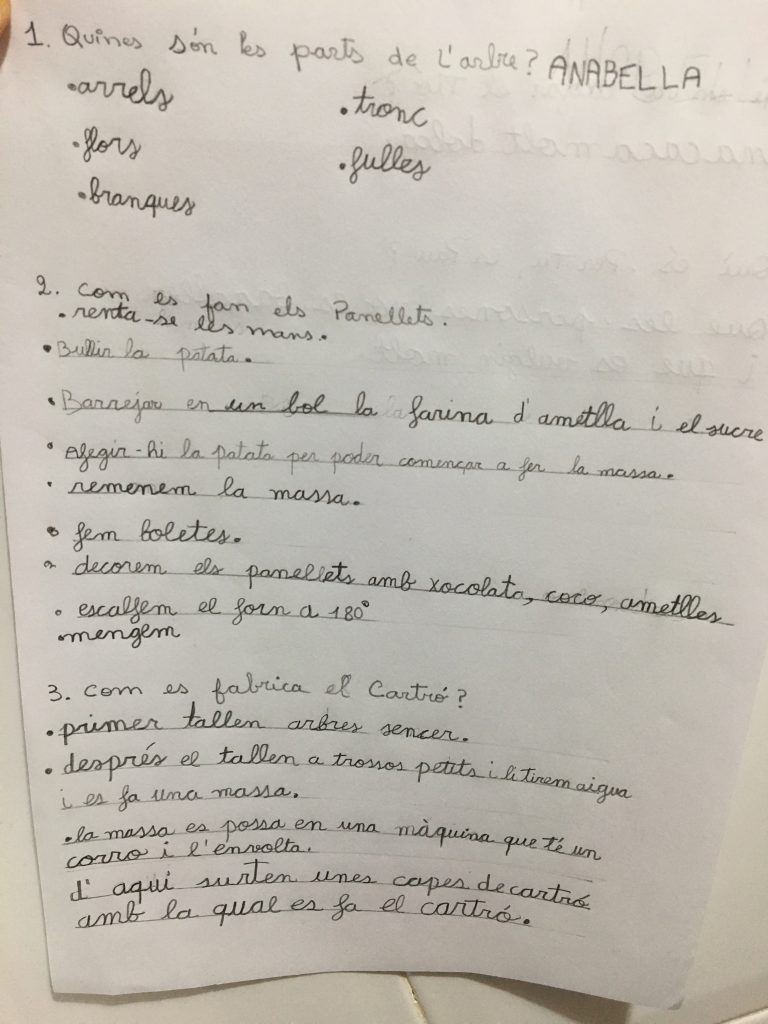 1. Quines són les parts de l'arbre? ANABELLA
•arrels
•tronc
•flors
•fulles
•branques
2. Com es fan els Panellets.
•renta-se les mans.
•Bullir la patata.
•Barrejar en un bol la farina d'ametlla i el sucre
•Afegir-hi la patata per poder començar a fer la massa.
•remenem la massa.
•fem boletes.
•decorem els panellets amb xocolata, coco, ametlles
•escalfem el forn a 180°
•mengem
3. Com es fabrica el Cartró?
•primer tallen arbres sencer.
•després el tallen a trossos petits i li tirem aigua
i es fa una massa.
•la massa es possa en una màquina que té un
corro i l'envolta.
d'aqui surten unes capes de cartró
amb la qual es fa el cartró.